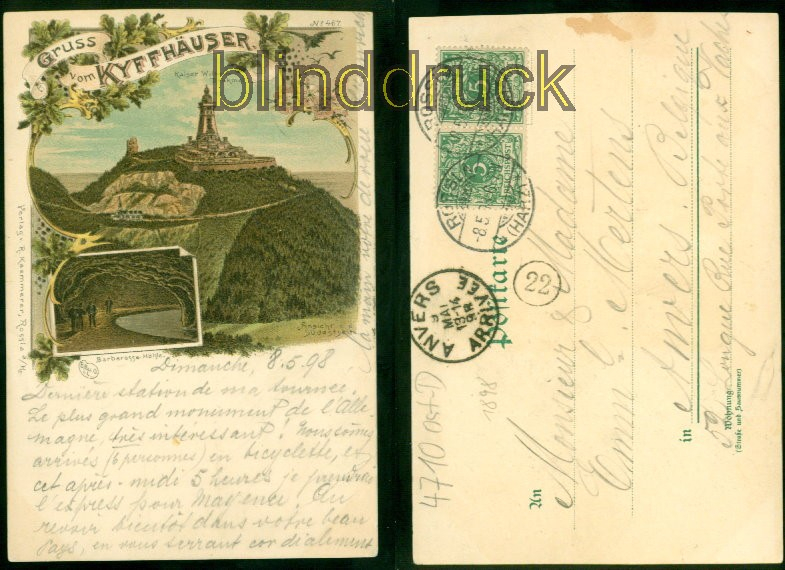 Gruss
vom KYFFHÄUSER.
No 467.
blinddruck
Kaiser
Verlag v. R. Kaemmerer, Rossla a/Hz.
Ansicht
Barbarossa-Höhle.
Dimanche, 8.5.98
Dernière station de ma tournée.
Le plus grand monument de l'Alle-
magne, très intéressant! nous sommes
arrivés (6 personnes) en bicyclette, et
cet après-midi 5 heures je prendrai
l'express pour Mayence. Au
revoir bientôt dans votre beau
pays, en vous serrant cordialement
la main votre
5
5
REICHSPOST
ROSSLA
(HARZ)
8.5
Postkarte
ANVERS
9
MAI
ARRIVÉE
22
An
Monsieur & Madame
Mertens
in Anvers. Belgique
Longue Rue Porte aux Vaches
Wohnung
(Straße und Hausnummer)
4710 Ost-D
1898